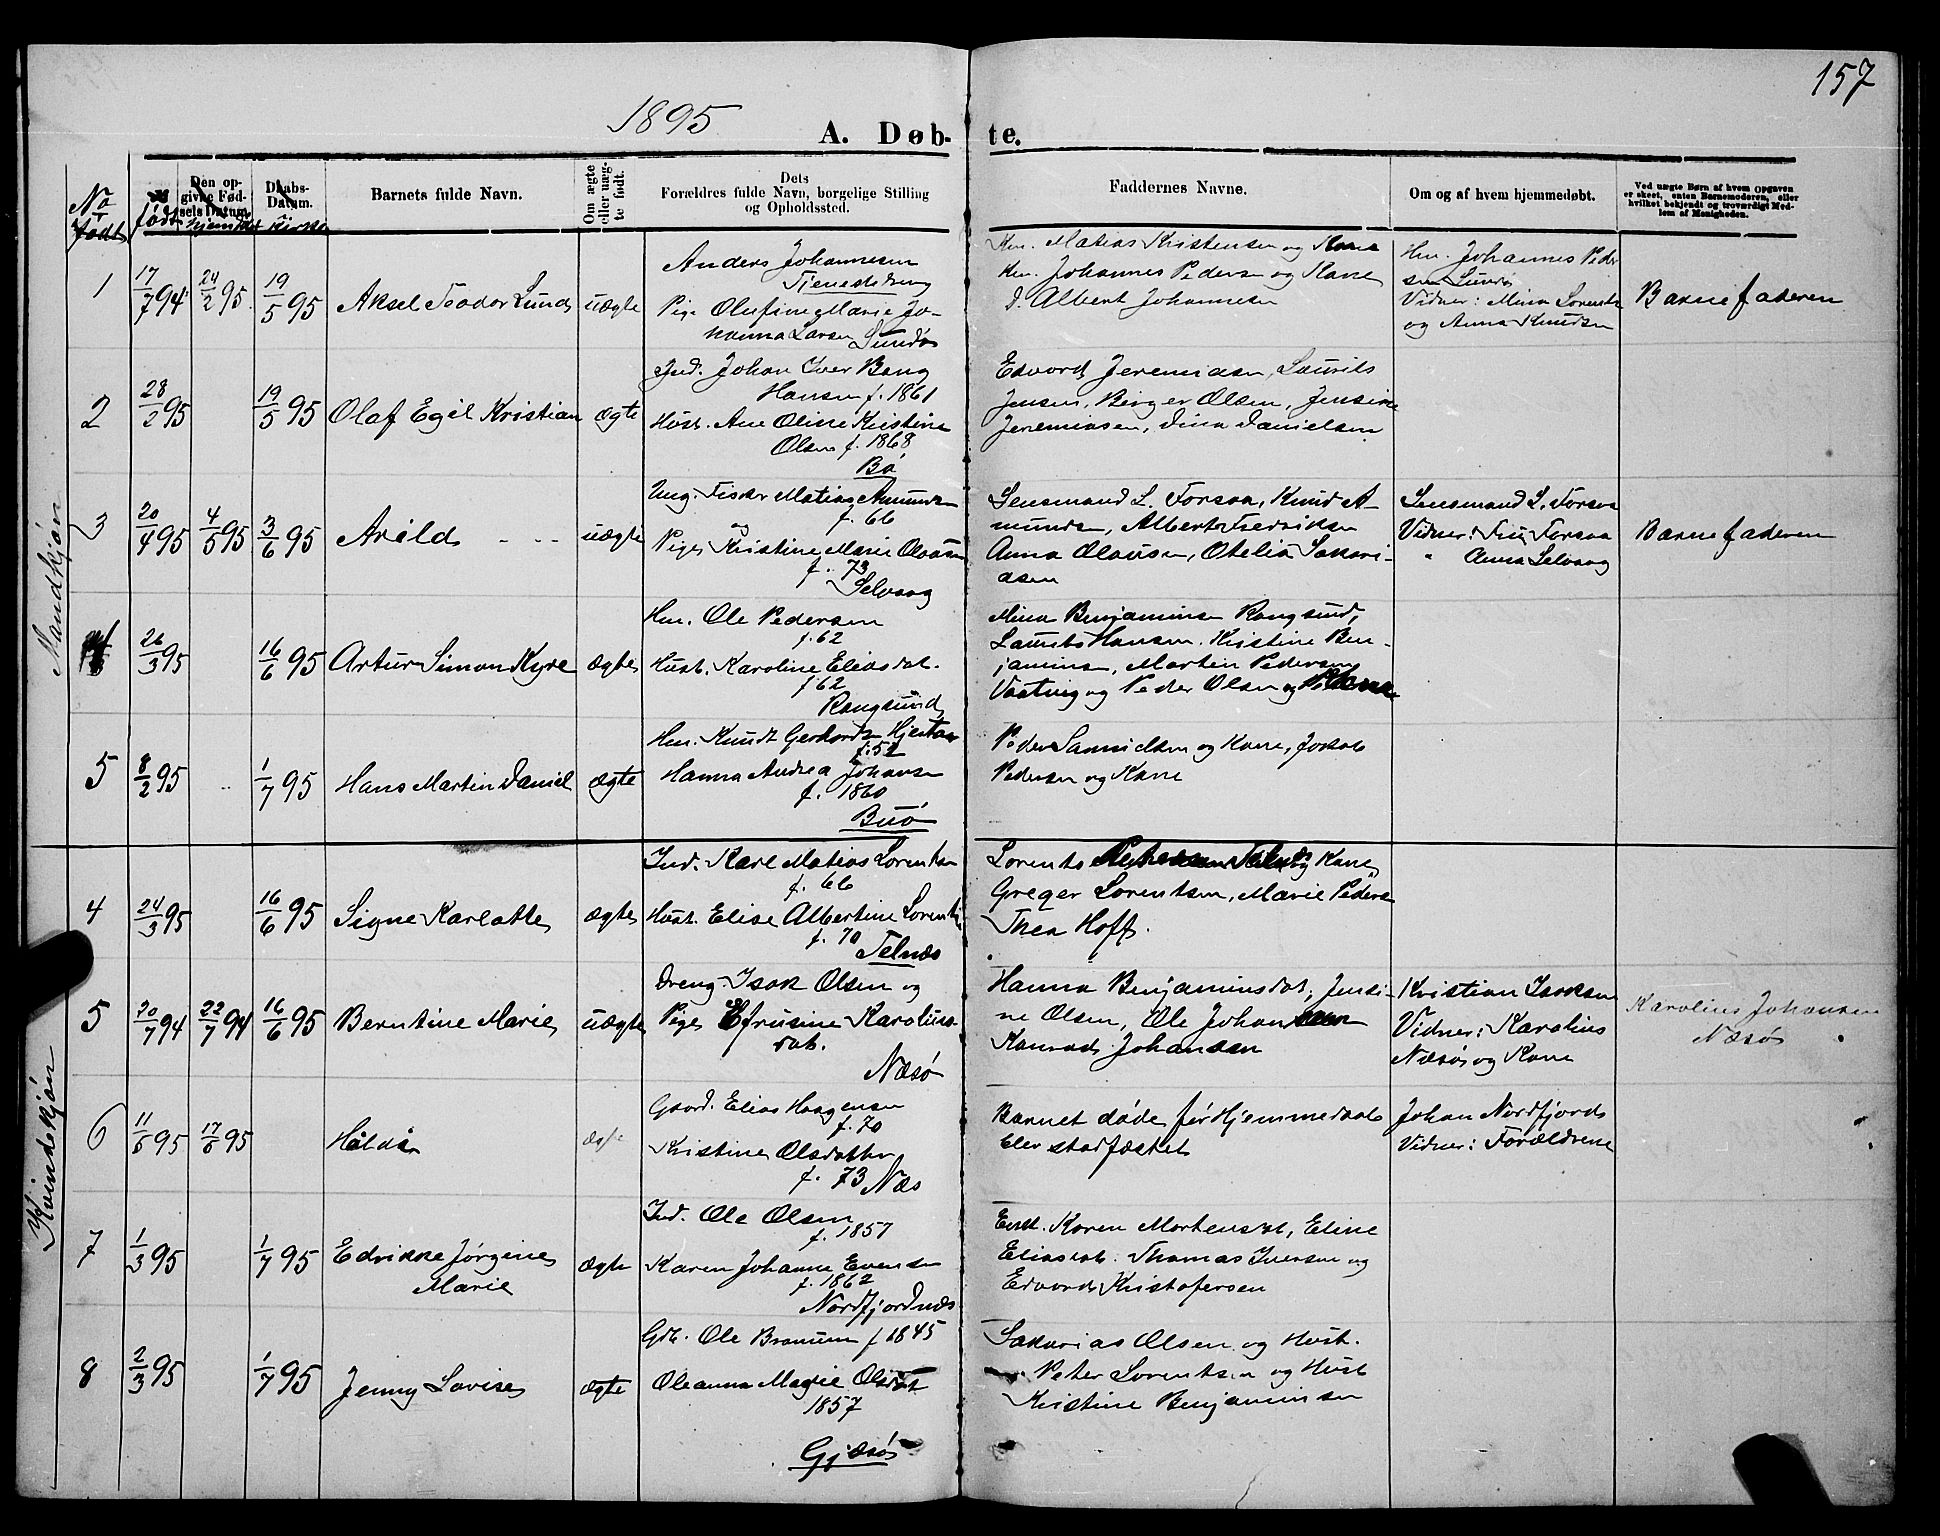 157
1895
A. Døb- te.
No født
født
Den opgivne Fødselsdatum.
hjemdøbt
Daabs-Datum.
Kirke
Barnets fulde Navn.
Om ægte eller uægte født.
Dets Forældres fulde Navn, borgelige Stilling og Opholdssted.
Faddernes Navne.
Om og af hvem hjemmedøbt.
Ved uægte Børn af hvem Opgaven er skeet, enten Barnemoderen, eller hvilket bekjendt og troværdigt Medlem af Menigheden.
Mandkjøn
1 17/7 94 24/2 95. 19/5 95 Aksel Teodor Lund uægte
Anders Johannesen
Tjenestedreng
Pige Olufine Marie Jo-
hanna Larsen Sundø
Km. Matias Kristensen og Kone
Km. Johannes Pedersen og Kone
d. Albert Johannesen
Hm. Johannes Peder
sen Lund
Vidner: Mina Lorents
og Anna Knudsen
Barnefaderen
2 28/2 95 19/5 95 Olaf Egil Kristian ægte
Ind. Johan Iver Bang
Hansen f. 1861
Hust. Ane Oline Kristine
Olsen f. 1868
Bø
Edvard Jeremiasen, Laurits
Jensen, Birger Olsen, Jensine
Jeremiasen, Dina Danielsen
3 20/4 95 4/5 95 3/6 95 Arild - - - uægte
Ung. Fisker Matias Amunds
f. 66
og
Pige Kristine Marie Olausen
f. 73
Selvaag
Lensmand L. Forsaa, Knud A-
mundsen, Albert Fredriksen
Anna Olausen, Otelia Sakari-
asen
Lensmand L. Forsaa
Vidner: Fru Forsaa
" Anna Selvaag
Barnefaderen
4 26/3 95 16/6 95 Artur Simon Kyre ægte
Hm. Ole Pedersen
f. 62
Hust. Karoline Eliasdat.
f 62
Rangsund
Mina Benjaminsen Rangsund,
Laurits Hansen. Kristine Ben-
jaminsen, Martin Pedersen
Vaatvig og Peder Olsen og Kone
5 8/2 95 .. 1/7 95 Hans Martin Daniel ægte
Hm. Knudt Gerhardsen Hjertøen
f. 52
Hanna Andrea Johansen
f. 1860
Buø
Peder Samuelsen og Kone, Jakob
Pedersen og Kone
Kvindekjøn
4 24/3 95 16/6 95 Signe Karlotte ægte
Ind. Karl Matias Lorentsen
f. 66
Hust. Elise Albertine Lorents
f. 70
Telnæs
Lorents Telnes og Kone,
Greger Lorentsen, Marie Peders
Thea Hoff.
5 20/7 94 22/7 94 16/6 95 Berntine Marie uægte
Dreng Isak Olsen og
Pige Efrusine Karolius-
dat.
Næsø
Hanna Benjaminsdat, Jensi-
ne Olsen, Ole Johansen
Konrad Johansen
Kristian Isaksen
Vidner: Karolius
Næsø og Kone
Karolius Johansen
Næsø
6 11/6 95 17/6 95 Hilda ægte
Gaard. Elias Haagensen
f. 70
Kristine Olsdatter
f. 73 Næs
Barnet døde før Hjemmedaab
blev stadfæstet
Johan Nordfjord
Vidner: Forældrene
7 1/3 95 1/7 95 Edvikke Jørgine
Marie ægte
Ind. Ole Olsen
f. 1857
Karen Johanne Evensen
f. 1862
Nordfjordnæs
Enk. Karen Mortensdat, Eline
Eliasdat. Thomas Iversen og
Edvard Kristofersen
8 2/3 95 1/7 95 Jenny Lovise ægte
Gdb. Ole Branum f 1845
Oleanna Marie Olsdat
1857
Gjæsø
Sakarias Olsen og Hust.
Peter Lorentsen og Hust
Kristine Benjaminsen